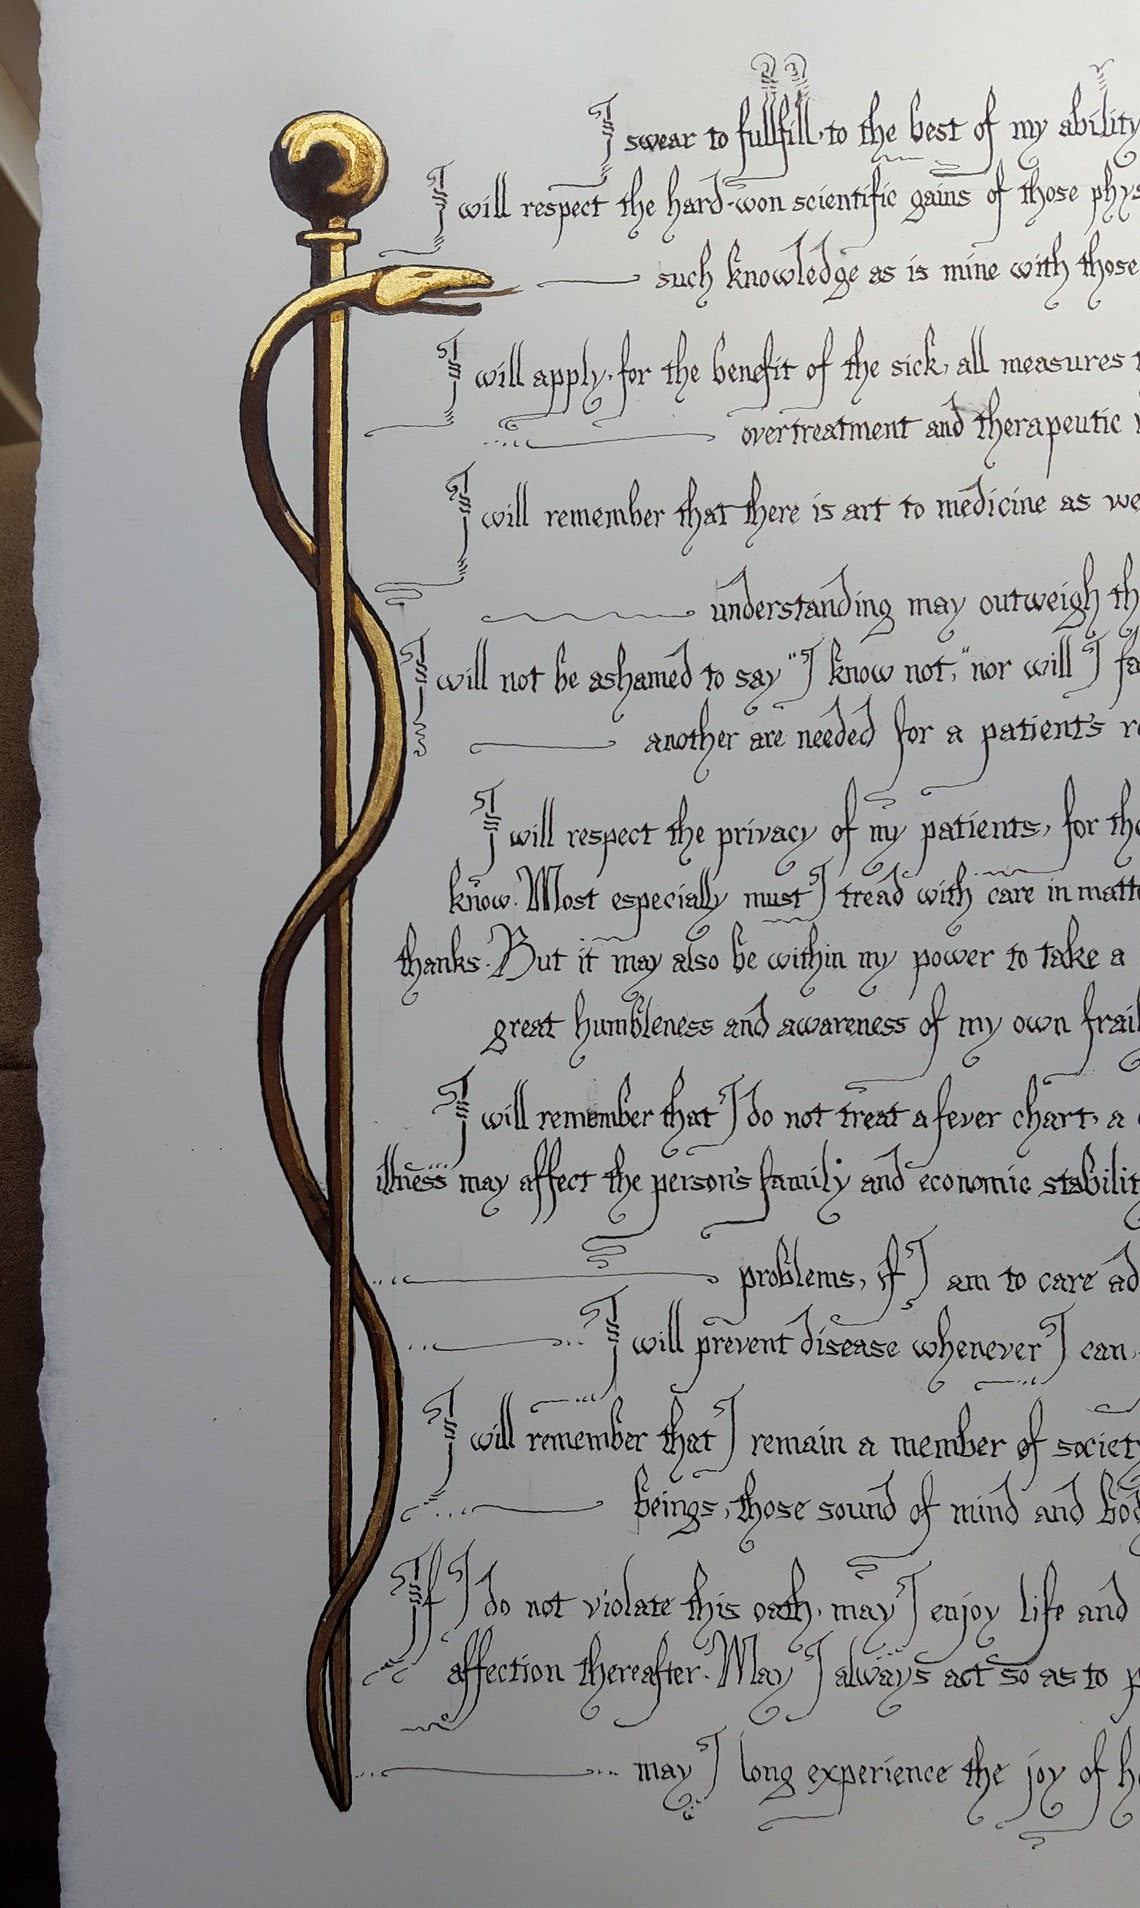 I swear to fullfill, to the best of my ability
I will respect the hard-won scientific gains of those
such knowledge as is mine with those
I will apply, for the benefit of the sick, all measures
overtreatment and therapeutic
I will remember that there is art to medicine as
understanding may outweigh
I will not be ashamed to say "I know not," nor will I
another are needed for a patient's
I will respect the privacy of my patients, for
know. Most especially must I tread with care in
thanks. But it may also be within my power to take a
great humbleness and awareness of my own
I will remember that I do not treat a fever chart, a
illness may affect the person's family and economic
problems, if I am to care
I will prevent disease whenever I can,
I will remember that I remain a member of
beings, those sound of mind and
If I do not violate this oath, may I enjoy life and
affection thereafter. May I always act so as to
may I long experience the joy of